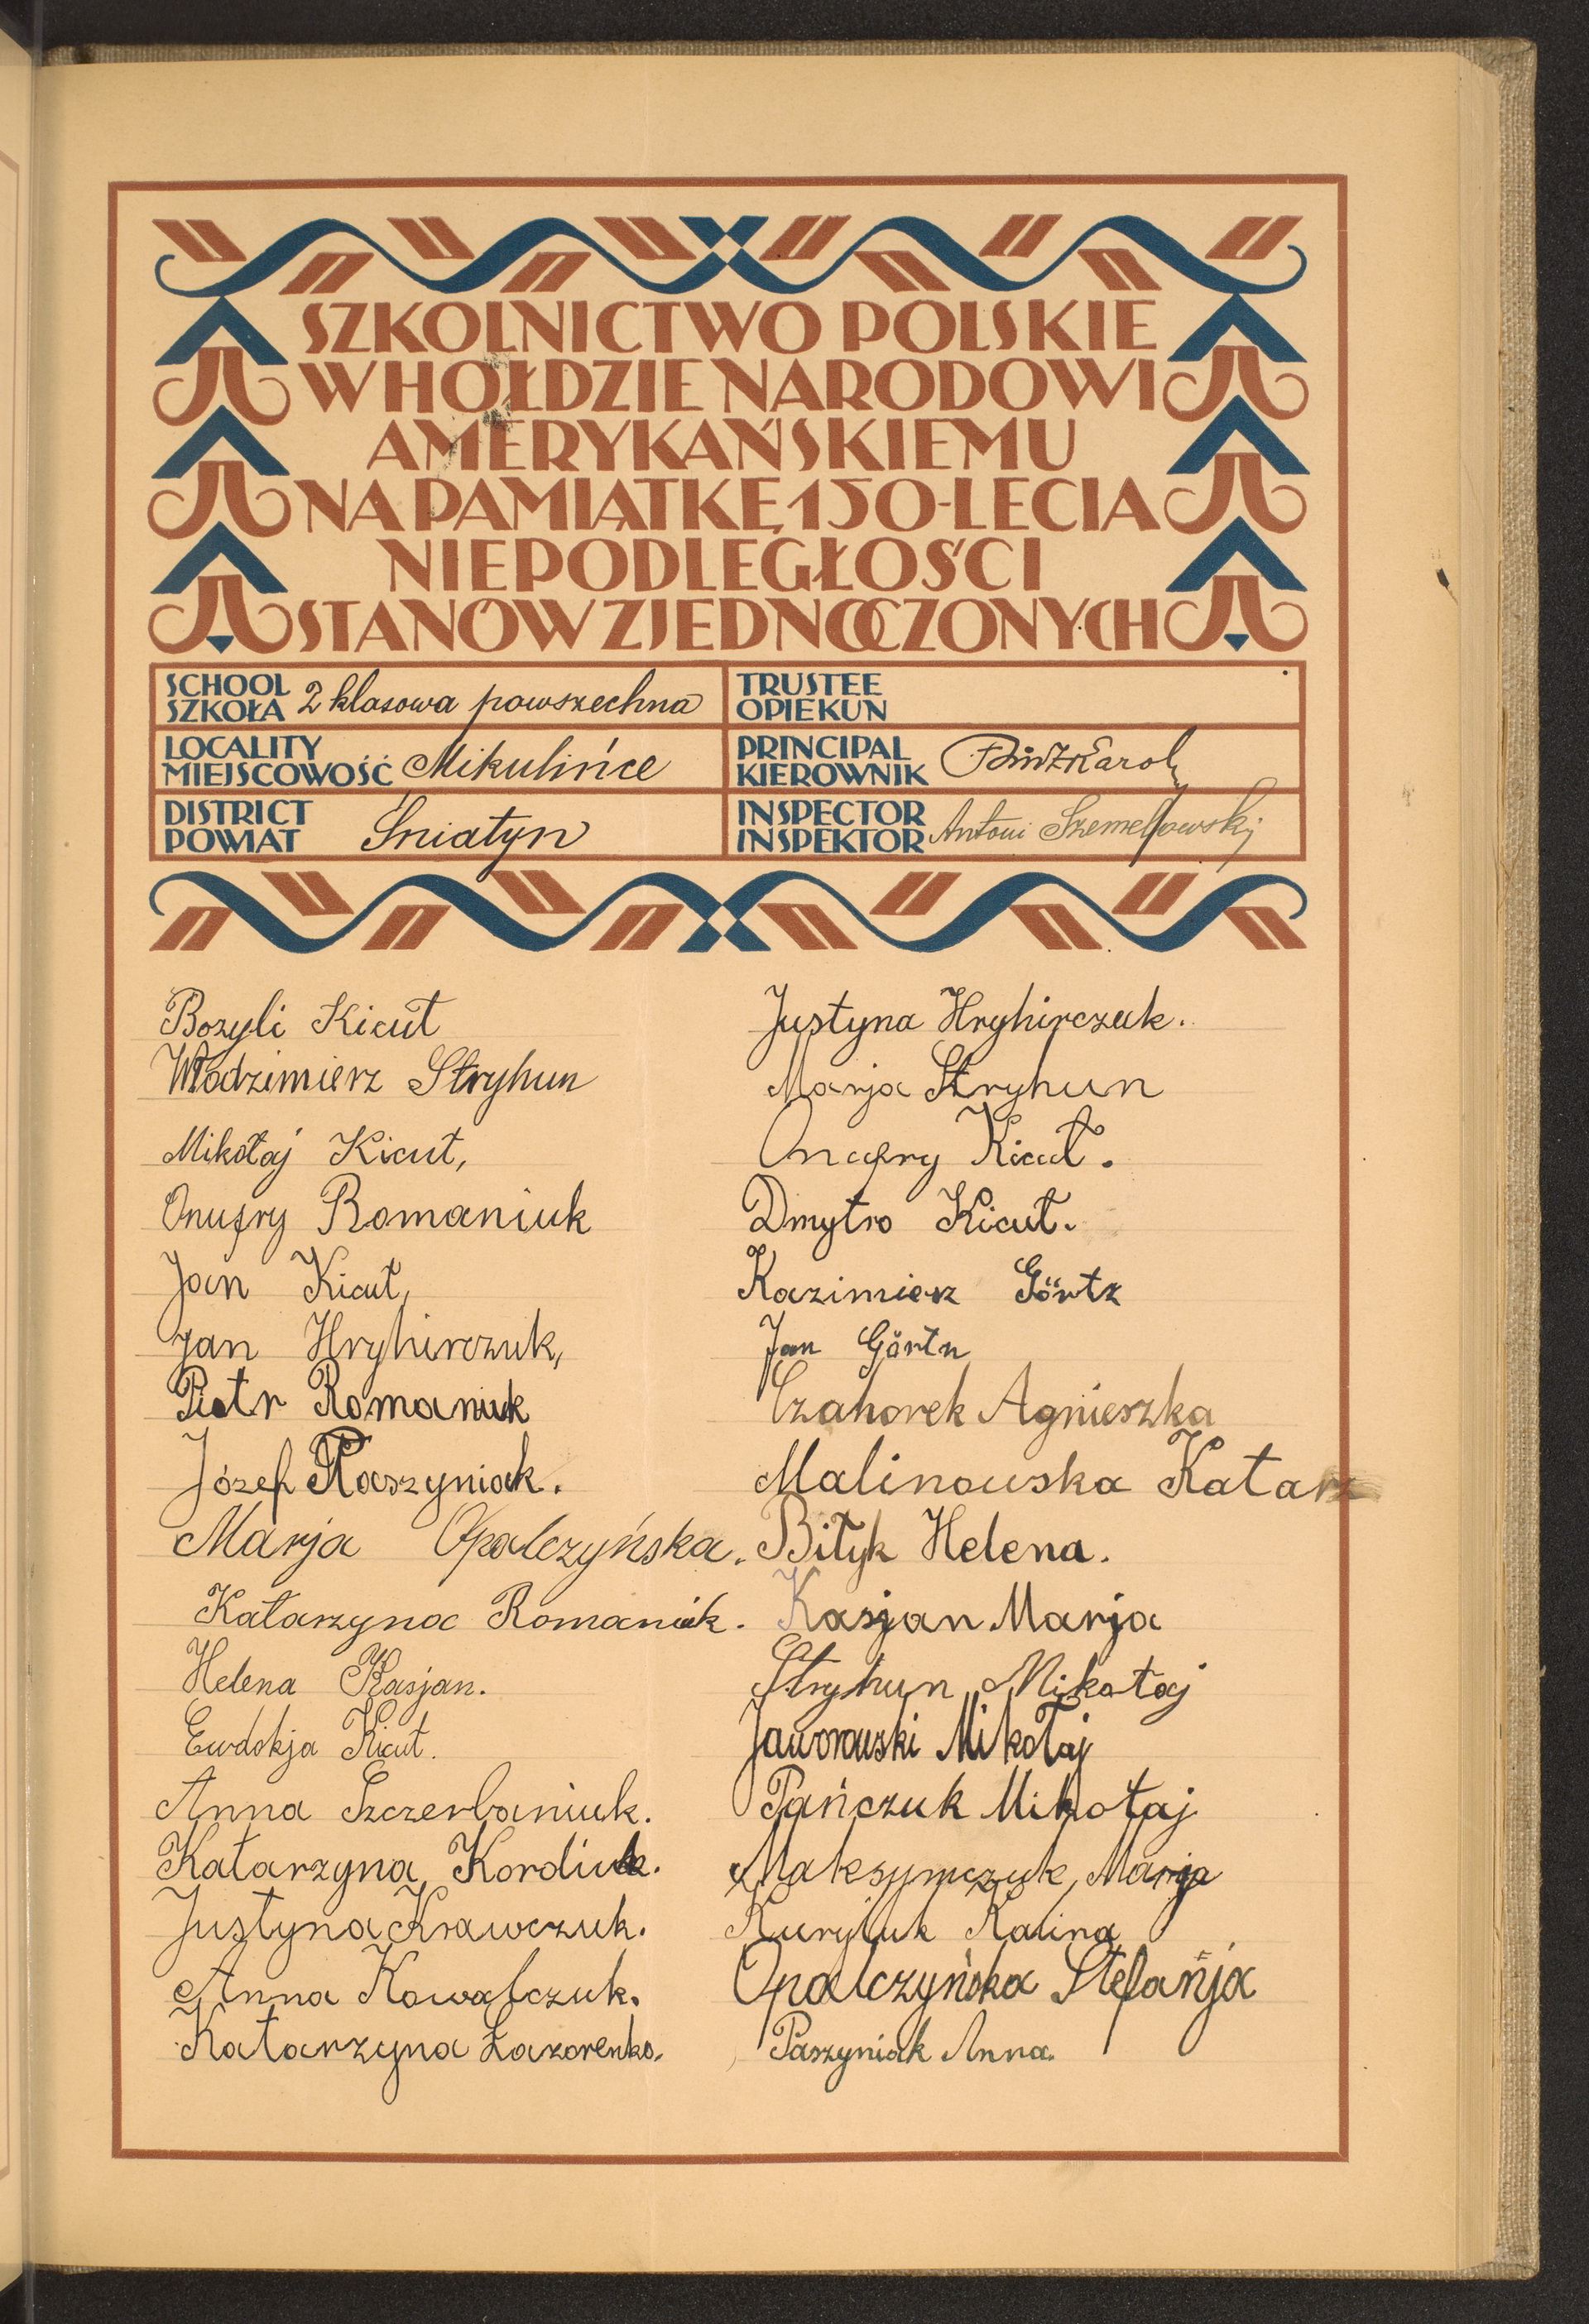 SZKOLNICTWO POLSKIE
W HOŁDZIE NARODOWI
AMERYKAŃSKIEMU
NA PAMIĄTKĘ 150-LECIA
NIEPODLEGŁOŚCI
STANÓW ZJEDNOCZONYCH
SCHOOL
SZKOŁA 2 klasowa powszechna
LOCALITY
MIEJSCOWOŚĆ Mikulińce
DISTRICT
POWIAT Śniatyn
TRUSTEE
OPIEKUN
PRINCIPAL
KIEROWNIK Karol
INSPECTOR
INSPEKTOR Antoni Szemelowski
Bozyli Kicut
Włodzimierz Stryhun
Mikołaj Kicut,
Onufry Romaniuk
Jan Kicut,
Jan Hryhirczuk,
Piotr Romaniuk
Józef Paszyniak.
Marja Opalczyńska.
Katarzyna Romaniuk.
Helena Kasjan.
Ewdokja Kicut.
Anna Szczerbaniuk.
Katarzyna Kordiuk.
Justyna Krawczuk.
Anna Kowalczuk.
Katarzyna Łazorenko.
Justyna Hryhirczuk.
Marja Stryhun
Onufry Kicut.
Dmytro Kicut.
Kazimierz Görtz
Jan Görtz
Czahorek Agnieszka
Malinowska Katarz
Bityk Helena.
Kasjan Marja
Stryhun Mikołaj
Jaworowski Mikołaj
Pańczuk Mikołaj
Maksymczuk Marja
Kuryluk Kalina
Opalczyńska Stefanja
Paszyniak Anna.